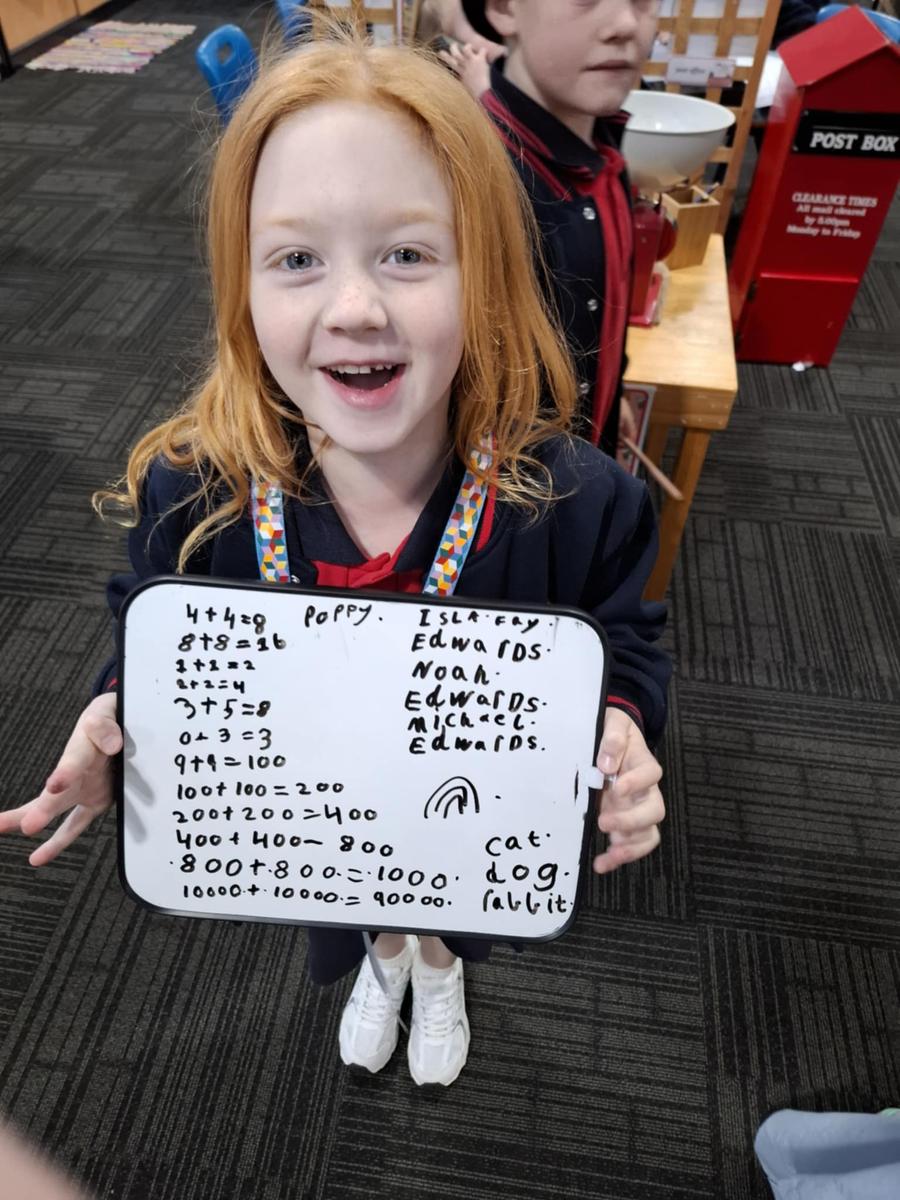 POST BOX
CLEARANCE TIMES
All mail cleared
by 5.00pm
Monday to Friday
4+4=8
8+8=16
1+1=2
2+2=4
3+5=8
0+3=3
9+9=100
100+100=200
200+200=400
400+400- 800
800+.800.=.1000.
10000.+.10000.= 90000.
POPPY.
ISLA.FAY.
EdwaRDS.
Noah.
EdwaRDS.
michael.
EdwaRDS.
cat.
dog.
rabbit.